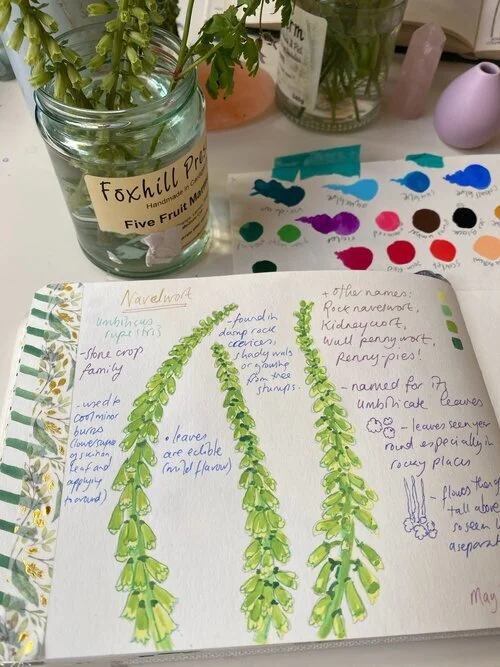 Foxhill Pres
Handmade in
Five Fruit Mar
Navelwort
umbilicus
rupestris
- stone crop
family
- used to
cool minor
burns
(lower
skin,
leaf and
applying
to wound)
- found in
damp rock
crevices,
shady walls
or growing
from tree
stumps.
• leaves
are edible
(mild flavour)
+ other names:
Rock navelwort,
Kidneywort,
Wall pennywort,
Penny-pies!
- named for it's
umbilicate leaves
- leaves seen year
round especially in
rocky places
- flowers
tall above
so seen
separat
May